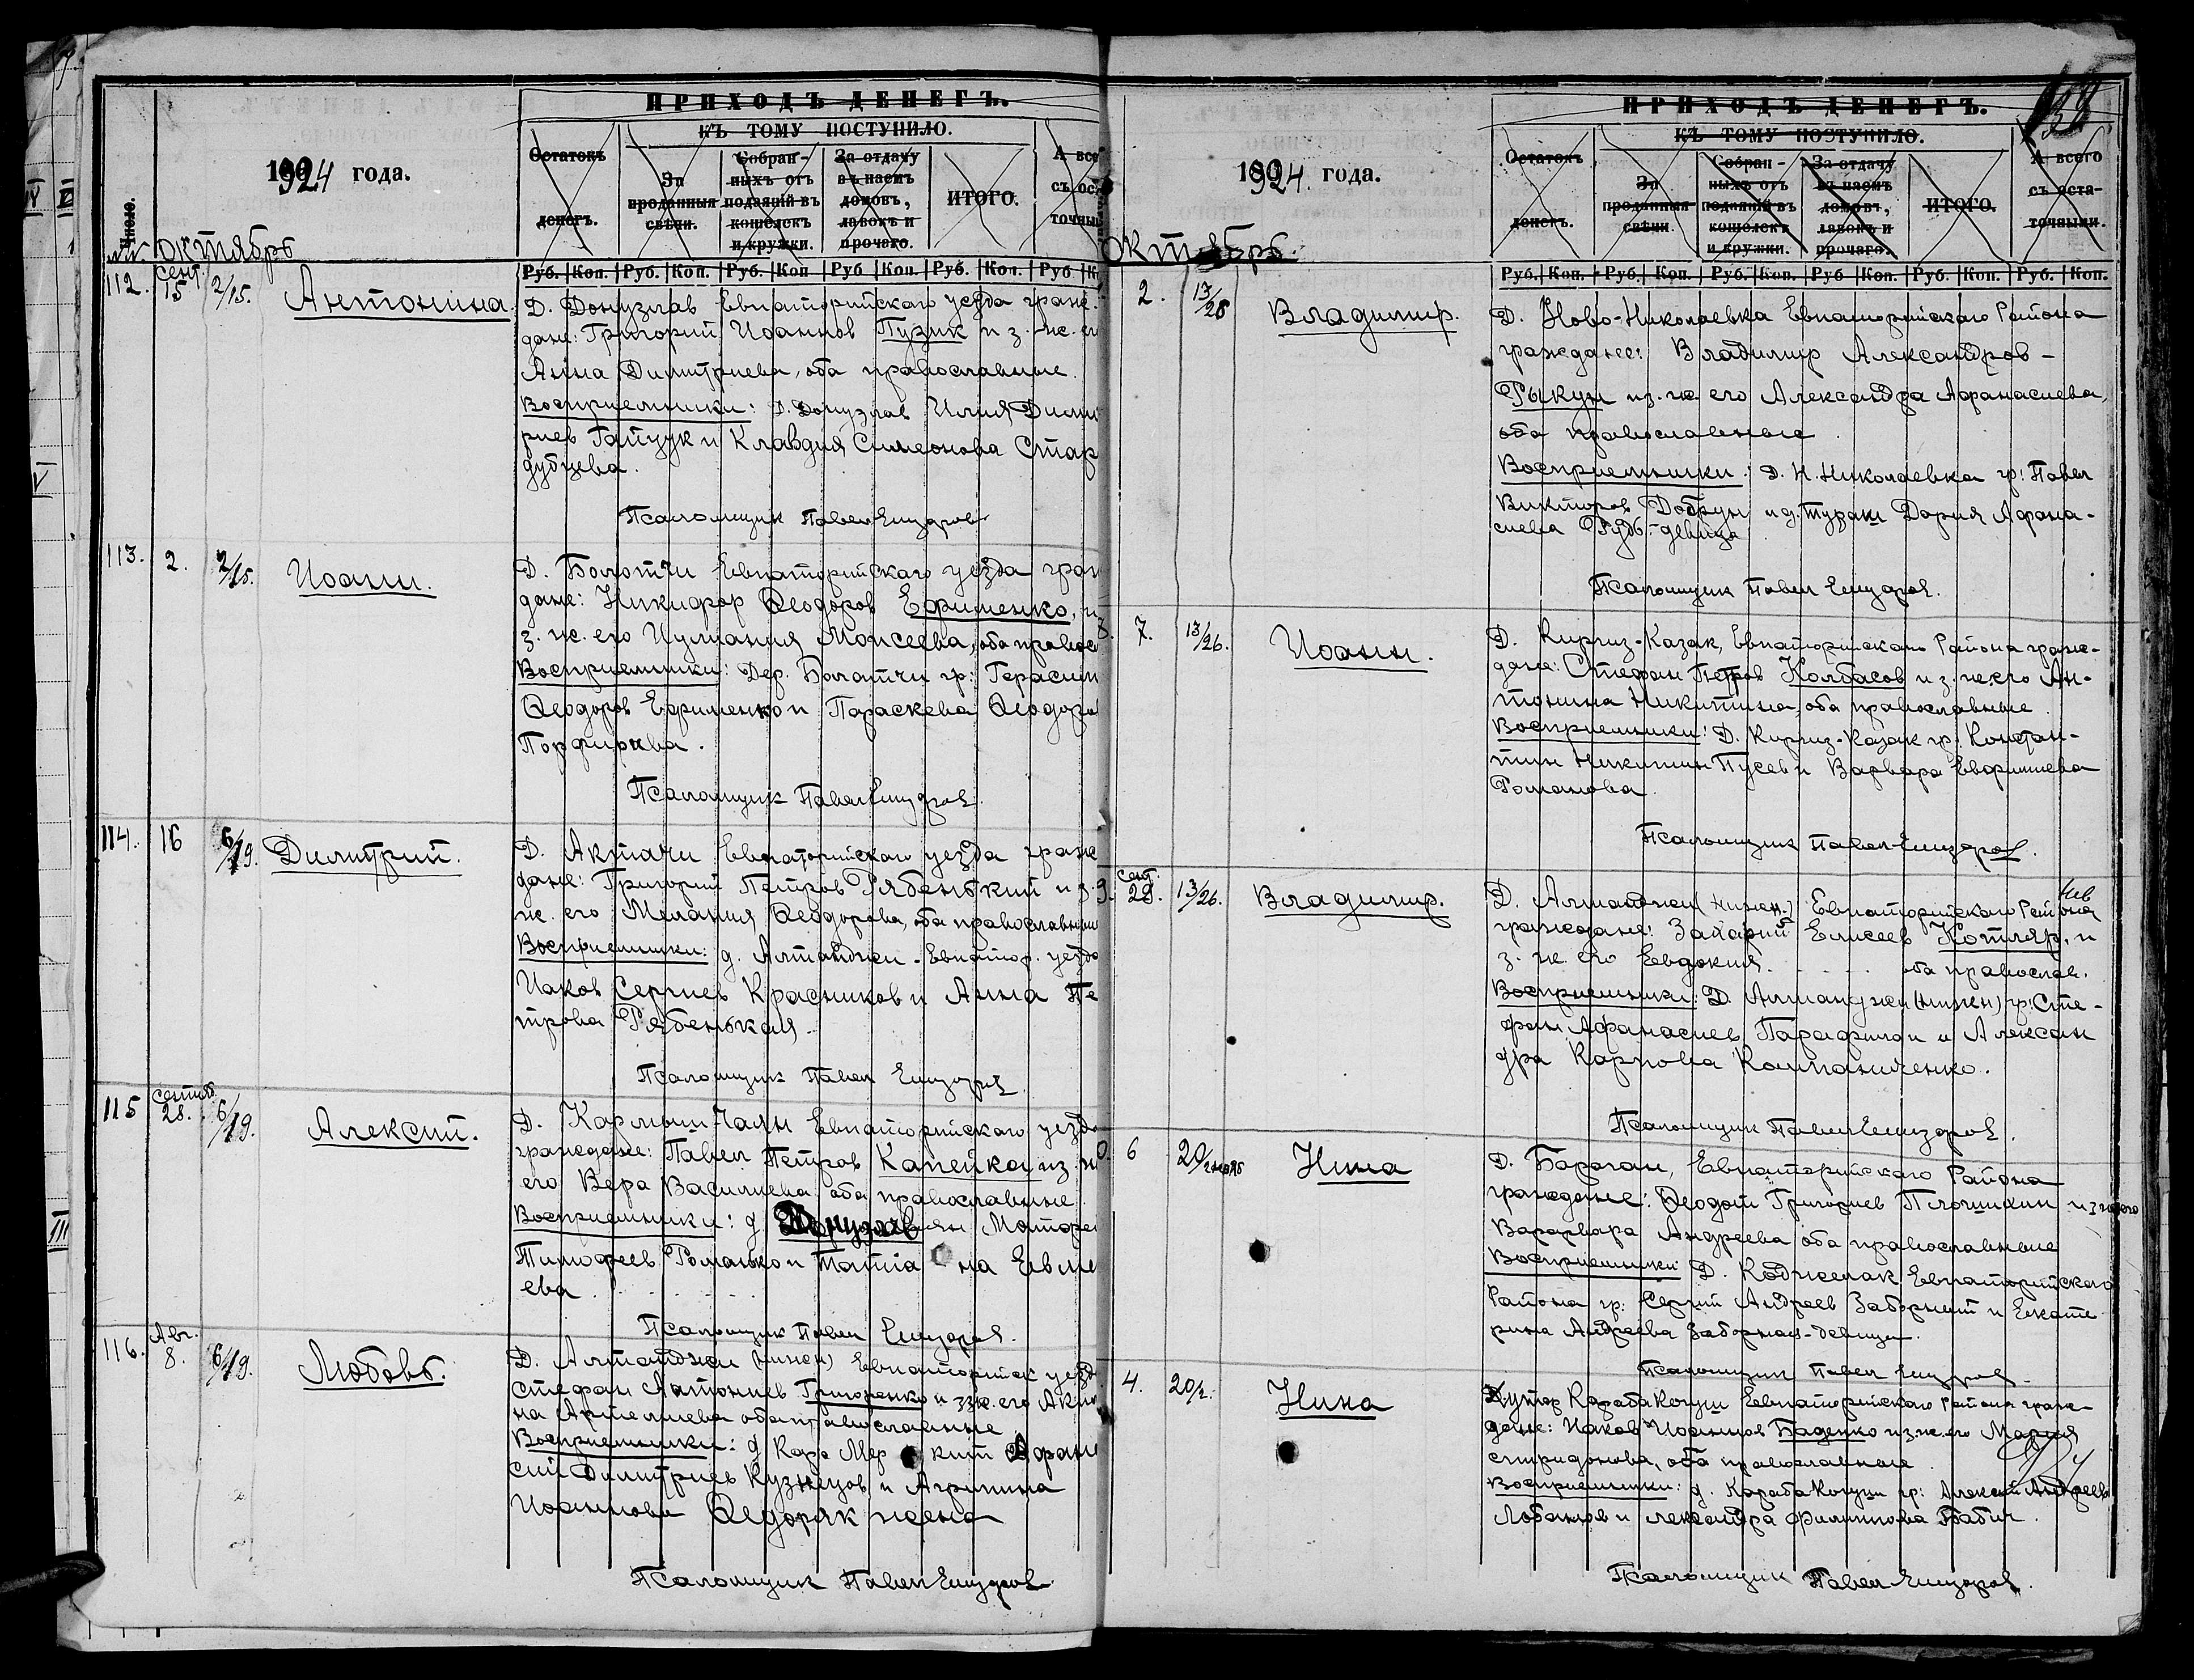 ПРИХОДЪ ДЕНЕГЪ.
КЪ ТОМУ ПОСТУПИЛО.
Остатокъ денегъ.
За проданныя свѣчи.
Собранныхъ отъ подаяній въ кошелекъ и кружки.
За отдачу въ наемъ домовъ, лавокъ и прочаго.
ИТОГО.
А все
съ ос
точны
1924 года.
Число.
октябрь
Руб. Коп. Руб. Коп. Руб. Коп Руб Коп. Руб. Коп. Руб.
112. сент. 15 2/15. Антонина.
Д. Донузлав Евпаторийскаго уезда граж-
дане: Григорий Иоаннов Пузик и з. ж. ег
Анна Димитриева, оба православные.
Восприемники: Д. Донузлав Илия Дими
риев Гайдук и Клавдия Симеонова Стар
дубцева.
Псаломщик Павел
113. 2. 2/15. Иоанн.
Д. Болотчи Евпаторийскаго уезда граж
дане: Никифор Феодоров Ефименко, и
з. ж. его Иулиания Моисеева, оба правос
Восприемники: Дер. Болатчи гр: Герасим
Феодоров Ефименко и Параскева Феодоро
Порфирьева.
Псаломщик Павел
114. 16 6/19. Димитрий.
Д. Актачи Евпаторийскаго уезда граж
дане: Григорий Петров Рябенький и з.
ж. его Мелания Феодорова, оба православные
Восприемники: д. Алтанджи - Евпатор. уезда
Иаков Сергиев Красников и Анна Пе
трова Рябенькая.
Псаломщик Павел
115 сентяб. 28. 6/19. Алексий.
Д. Кармыш-Чаян Евпаторийскаго уезда
граждане: Павел Петров Капейка и з. ж
его Вера Васильева оба православные
Восприемники: д Донузлав
Тимофеев Романько и Татиа на Евме
ева
Псаломщик Павел
116. Авг. 8. 6/19. Любовь.
Д. Алтанджи (нижн) Евпаторийск уезд
Стефан Антониев Григоренко и з ж. его Аки
на Артемиева оба православные
Восприемники: д Кара Мер кит Афана
сий Димитриев Кузнецов и Агрипина
Иоаннова Федоряк жена
Псаломщик Павел
ПРИХОДЪ ДЕНЕГЪ.
КЪ ТОМУ ПОСТУПИЛО.
Остатокъ денегъ.
За проданныя свѣчи.
Собранныхъ отъ подаяній въ кошелекъ и кружки.
За отдачу въ наемъ домовъ, лавокъ и прочаго.
ИТОГО.
А всего съ остаточными.
1924. года.
октябрь.
Руб. Коп. Руб. Коп. Руб. Коп. Руб Коп. Руб. Коп. Руб. Коп.
2. 13/26 Владимир.
Д. Ново-Николаевка Евпаторийскаго Района
граждане: Владимир Александров -
Рыкун и з. ж его Александра Афанасиева,
оба православные.
Восприемники: Д. Н. Николаевка гр: Павел
Викторов Добрун и д. Дария Афана-
сиева - девица
Псаломщик Павел
7. 13/26. Иоанн.
Д. Киргиз-Казак, Евпаторийскаго Района граж-
дане: Стефан Петров Колбасов и з. ж его Ан-
тонина Никитина, оба православные.
Восприемники: Д. Киргиз-Казак гр: Констан-
тин Никитин Гусев и Варвара
Романова.
Псаломщик Павел
9. сент. 29. 13/26. Владимир.
Д. Алтанджи (нижн.) Евпаторийскаго Района
граждане: Захарий Елисеев Котляр, и
з. ж. его Евдокия. . . . . оба православ.
Восприемники: Д. Алтанджи (нижн) гр: Сте-
фан Афанасиев Парафилон и Алексан
дра Карпова Кампаниченко.
Псаломщик Павел
0. 6 20/2 нояб Нина
Д. Бараган, Евпаторийскаго Района
граждане: Феодот Григориев Плошихин и з ж его
Варарвара Андреева оба православные
Восприемники: Д. Коджелак Евпаторийскаго
Района гр: Сергий Андреев Заборный и Екате
рина Андреева Заборная - девица.
Псаломщик Павел
4. 20/2. Нина
Хутор Караба Евпаторийскаго Района граж-
дане: Иаков Иоаннов Баденко и з. ж. его Мария
Спиридонова, оба православные
Восприемники: д. Караба гр: Алексий Андреев
Лобанов и лександра Филиппова Бабич.
Псаломщик Павел